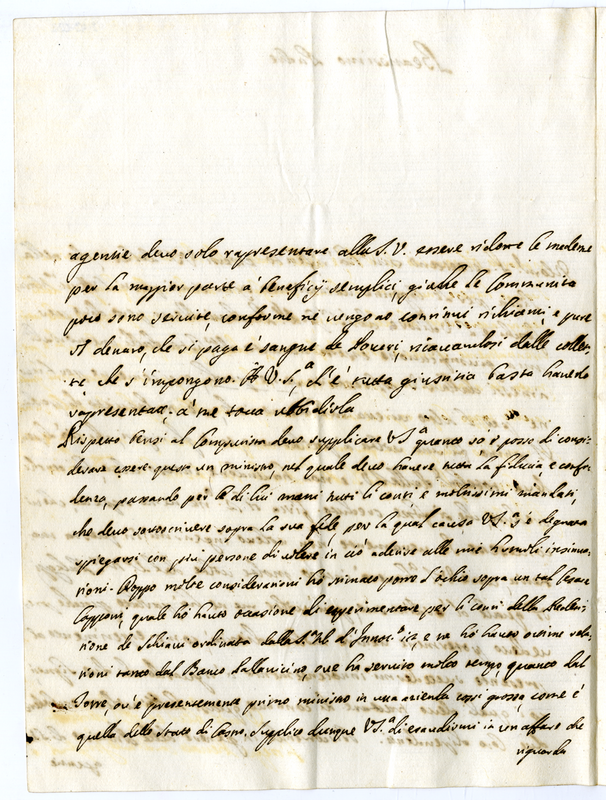 agentie devo solo rapresentare alla S. V. essere ridotte le medeme
per la maggior parte à beneficij semplici, giache le Communità
poco sono servite, conforme ne vengono continui richiami, e pure
il denaro, che si paga è sangue de Poveri, ricavandosi dalle collet-
te che s'impongono. A V. S.ª, ch'è tutta giustitia basta haverlo
rapresentato, à me tocca ubbidirla
Rispetto bensi al Computista devo supplicare V. S.ª quanto sò, e posso di consi-
derare essere questo un ministro, nel quale devo havere tutta la fiducia e confi-
denza, passando per le di lui mani tutti li conti, e moltissimi mandati,
che devo sottoscrivere sopra la sua fede, per la qual causa V. S.ª s'è degnata
spiegarsi con più persone di volere in ciò aderire alle mie humili insinua-
tioni. Doppo molte considerationi hò stimato porre l'ochio sopra un tal Cesare
Capponi, quale hò hauto occasione di esperimentare per li conti della
tione de Schiavi ordinata dalla d'Innoc.º e ne hò hauto ottime rela-
tioni tanto dal Banco Pallavicino, ove ha servito molto tempo, quanto dal
Torre, ov'è presentemente primo ministro in una azienda così grossa, come è
quella dello Stato di Castro. Supplico dunque V. S.ª di esaudirmi in un affare che
riguarda